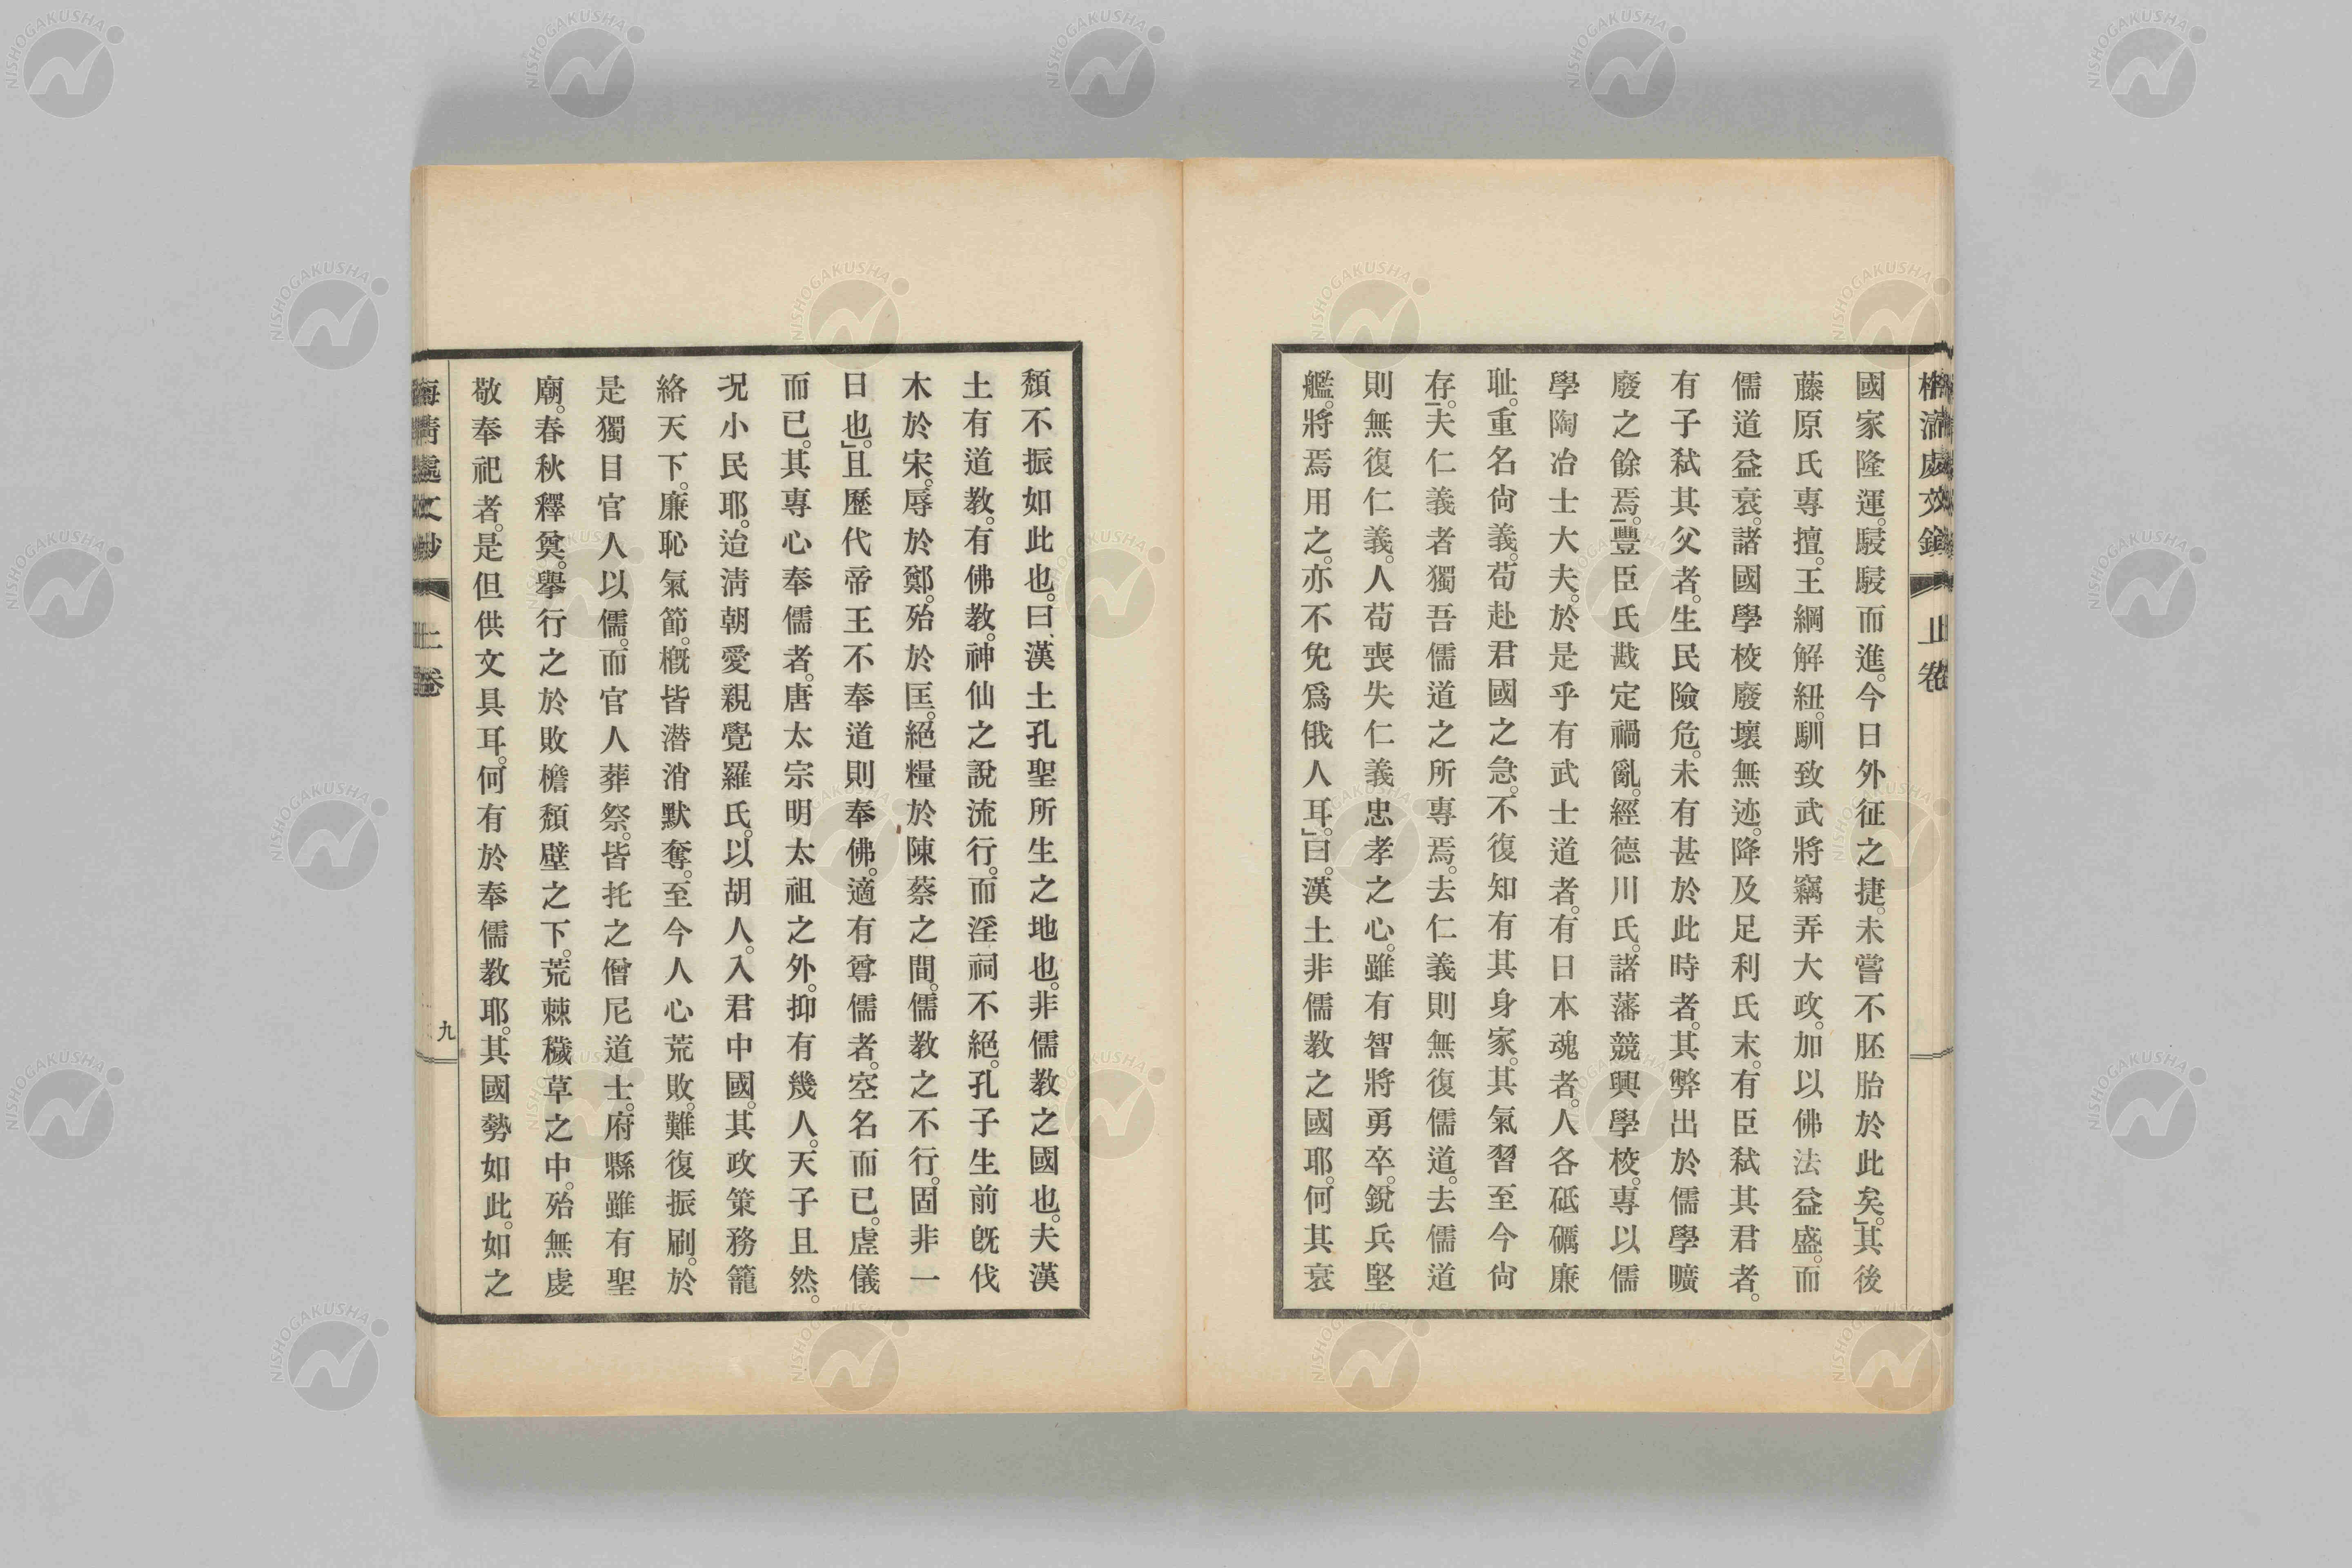 國家隆運。駸駸而進。今日外征之捷。未嘗不胚胎於此矣。」其後
藤原氏專擅。王綱解紐。馴致武將竊弄大政。加以佛法益盛。而
儒道益衰。諸國學校廢壞無迹。降及足利氏末。有臣弑其君者。
有子弑其父者。生民險危。未有甚於此時者。其弊出於儒學曠
廢之餘焉。」豐臣氏戡定禍亂。經德川氏。諸藩競興學校。專以儒
學陶冶士大夫。於是乎有武士道者。有日本魂者。人各砥礪廉
耻。重名尙義。苟赴君國之急。不復知有其身家。其氣習至今尙
存。」夫仁義者獨吾儒道之所專焉。去仁義則無復儒道。去儒道
則無復仁義。人苟喪失仁義忠孝之心。雖有智將勇卒。銳兵堅
艦。將焉用之。亦不免爲俄人耳。」曰。漢土非儒敎之國耶。何其衰
頹不振如此也。曰、漢土孔聖所生之地也。非儒敎之國也。夫漢
土有道敎。有佛敎。神仙之說流行。而淫祠不絕。孔子生前旣伐
木於宋。辱於鄭。殆於匡。絕糧於陳蔡之間。儒敎之不行。固非一
日也。」且歷代帝王不奉道則奉佛。適有尊儒者。空名而已。虛儀
而已。其專心奉儒者。唐太宗明太祖之外。抑有幾人。天子且然。
况小民耶。迨淸朝愛親覺羅氏。以胡人。入君中國。其政策務籠
絡天下。廉恥氣節。槪皆潜消默奪。至今人心荒敗。難復振刷。於
是獨目官人以儒。而官人葬祭。皆托之僧尼道士。府縣雖有聖
廟。春秋釋奠。擧行之於敗檐頹壁之下。荒棘穢草之中。殆無虔
敬奉祀者。是但供文具耳。何有於奉儒敎耶。其國勢如此。如之
上卷
九
NISHOGAKUSHA